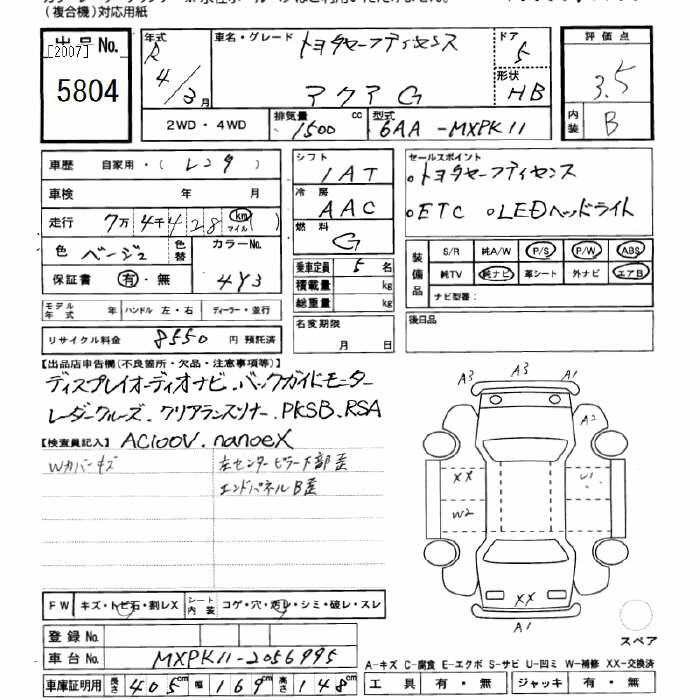 (複合機)対応用紙
出品No.
[2007]
5804
年式
R
4/3月
車名・グレード
トヨタセーフティセンス
アクア G
ドア
5
形状
HB
評価点
3.5
内装
B
2WD・4WD
排気量
1500 cc
型式
6AA-MXPK11
車歴 自家用・(レンタ)
車検 年 月
走行 7万4千428 km マイル ( )
色 ベージュ 色替
カラーNo.
4Y3
保証書 有・無
モデル年式 年 ハンドル 左・右 ディーラー・並行
リサイクル料金 8550 円 預託済
シフト
IAT
冷房
AAC
燃料
G
乗車定員 5 名
積載量 kg
総重量 kg
名変期限
月 日
セールスポイント
トヨタセーフティセンス
ETC LEDヘッドライト
装備品
S/R 純A/W P/S P/W ABS
純TV 純ナビ 革シート 外ナビ エアB
ナビ型番:
後日品
【出品店申告欄(不良箇所・欠品・注意事項等)】
ディスプレイオーディオナビ.バックガイドモニター
レーダークルーズ.クリアランスソナー.PKSB.RSA
AC100V.nanoeX
【検査員記入】
Wカバーキズ
左センターピラー下部歪
エンドパネルB歪
A3 A3 A1
A2
XX U1
W2
XX
A1
スペア
FW キズ・トビ石・割レX
シート内装 コゲ・穴・汚レ・シミ・破レ・スレ
登録No.
車台No. MXPK11-2056995
車庫証明用 長さ 405cm 幅 169cm 高さ 148cm
A-キズ C-腐食 E-エクボ S-サビ U-凹ミ W-補修 XX-交換済
工具 有・無 ジャッキ 有・無